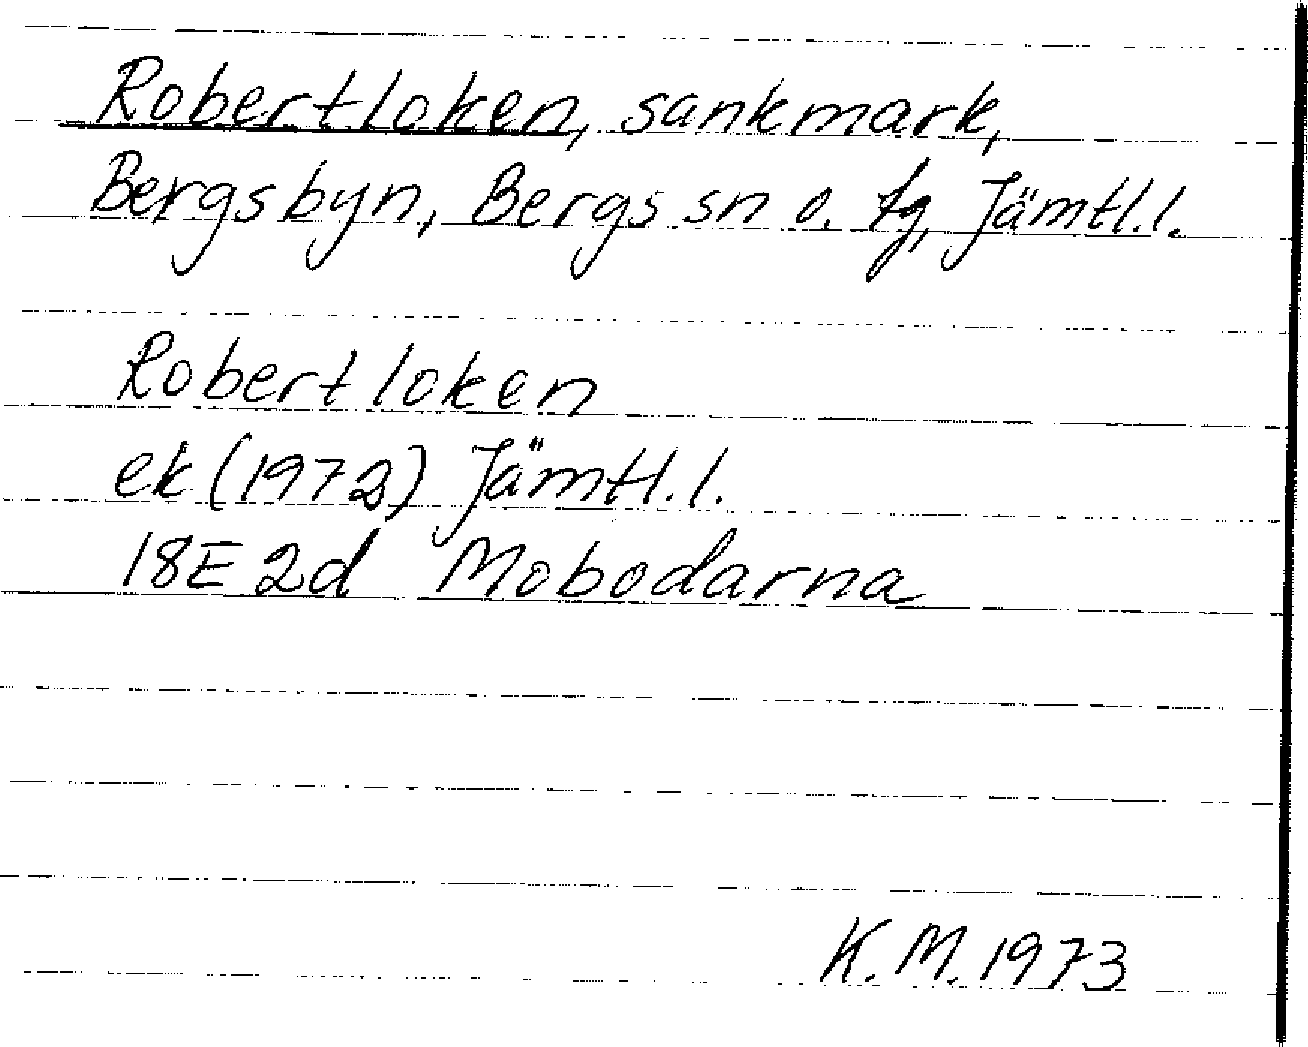 Robertloken, sankmark,
Bergsbyn, Bergs sn o. tg, Jämtl.l.
Robertloken
ek (1972) Jämtl.l.
18E 2d Mobodarna
K.M. 1973